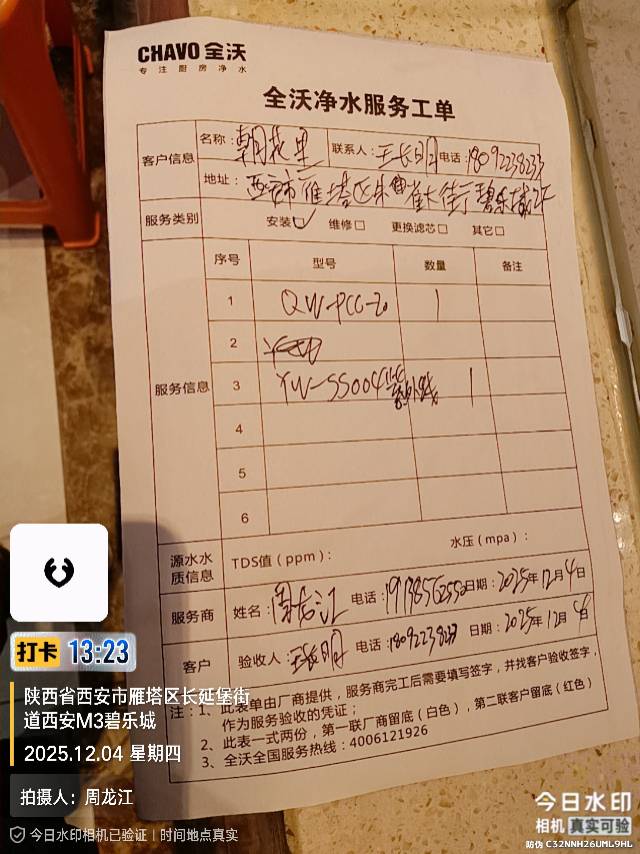 CHAVO 全沃
专注厨房净水
全沃净水服务工单
客户信息
名称：朝花里 联系人：王长明 电话：18092238233
地址：西安市雁塔区朱雀大街碧乐城2F
服务类别 安装☑ 维修□ 更换滤芯□ 其它□
服务信息
序号 型号 数量 备注
1 QW-PCC-20 1
2
3 YW-SS004 紫外线 1
4
5
6
源水水质信息 TDS值（ppm）： 水压（mpa）：
服务商 姓名：周龙江 电话：19138562552 日期：2025年12月4日
客户 验收人：王长明 电话：18092238233 日期：2025年12月4日
注：1、此表单由厂商提供，服务商完工后需要填写签字，并找客户验收签字，
作为服务验收的凭证；
2、此表一式两份，第一联厂商留底（白色），第二联客户留底（红色）
3、全沃全国服务热线：4006121926
打卡 13:23
陕西省西安市雁塔区长延堡街
道西安M3碧乐城
2025.12.04 星期四
拍摄人：周龙江
今日水印相机已验证｜时间地点真实
今日水印
相机 真实可验
防伪 C32NNH26UML9HL